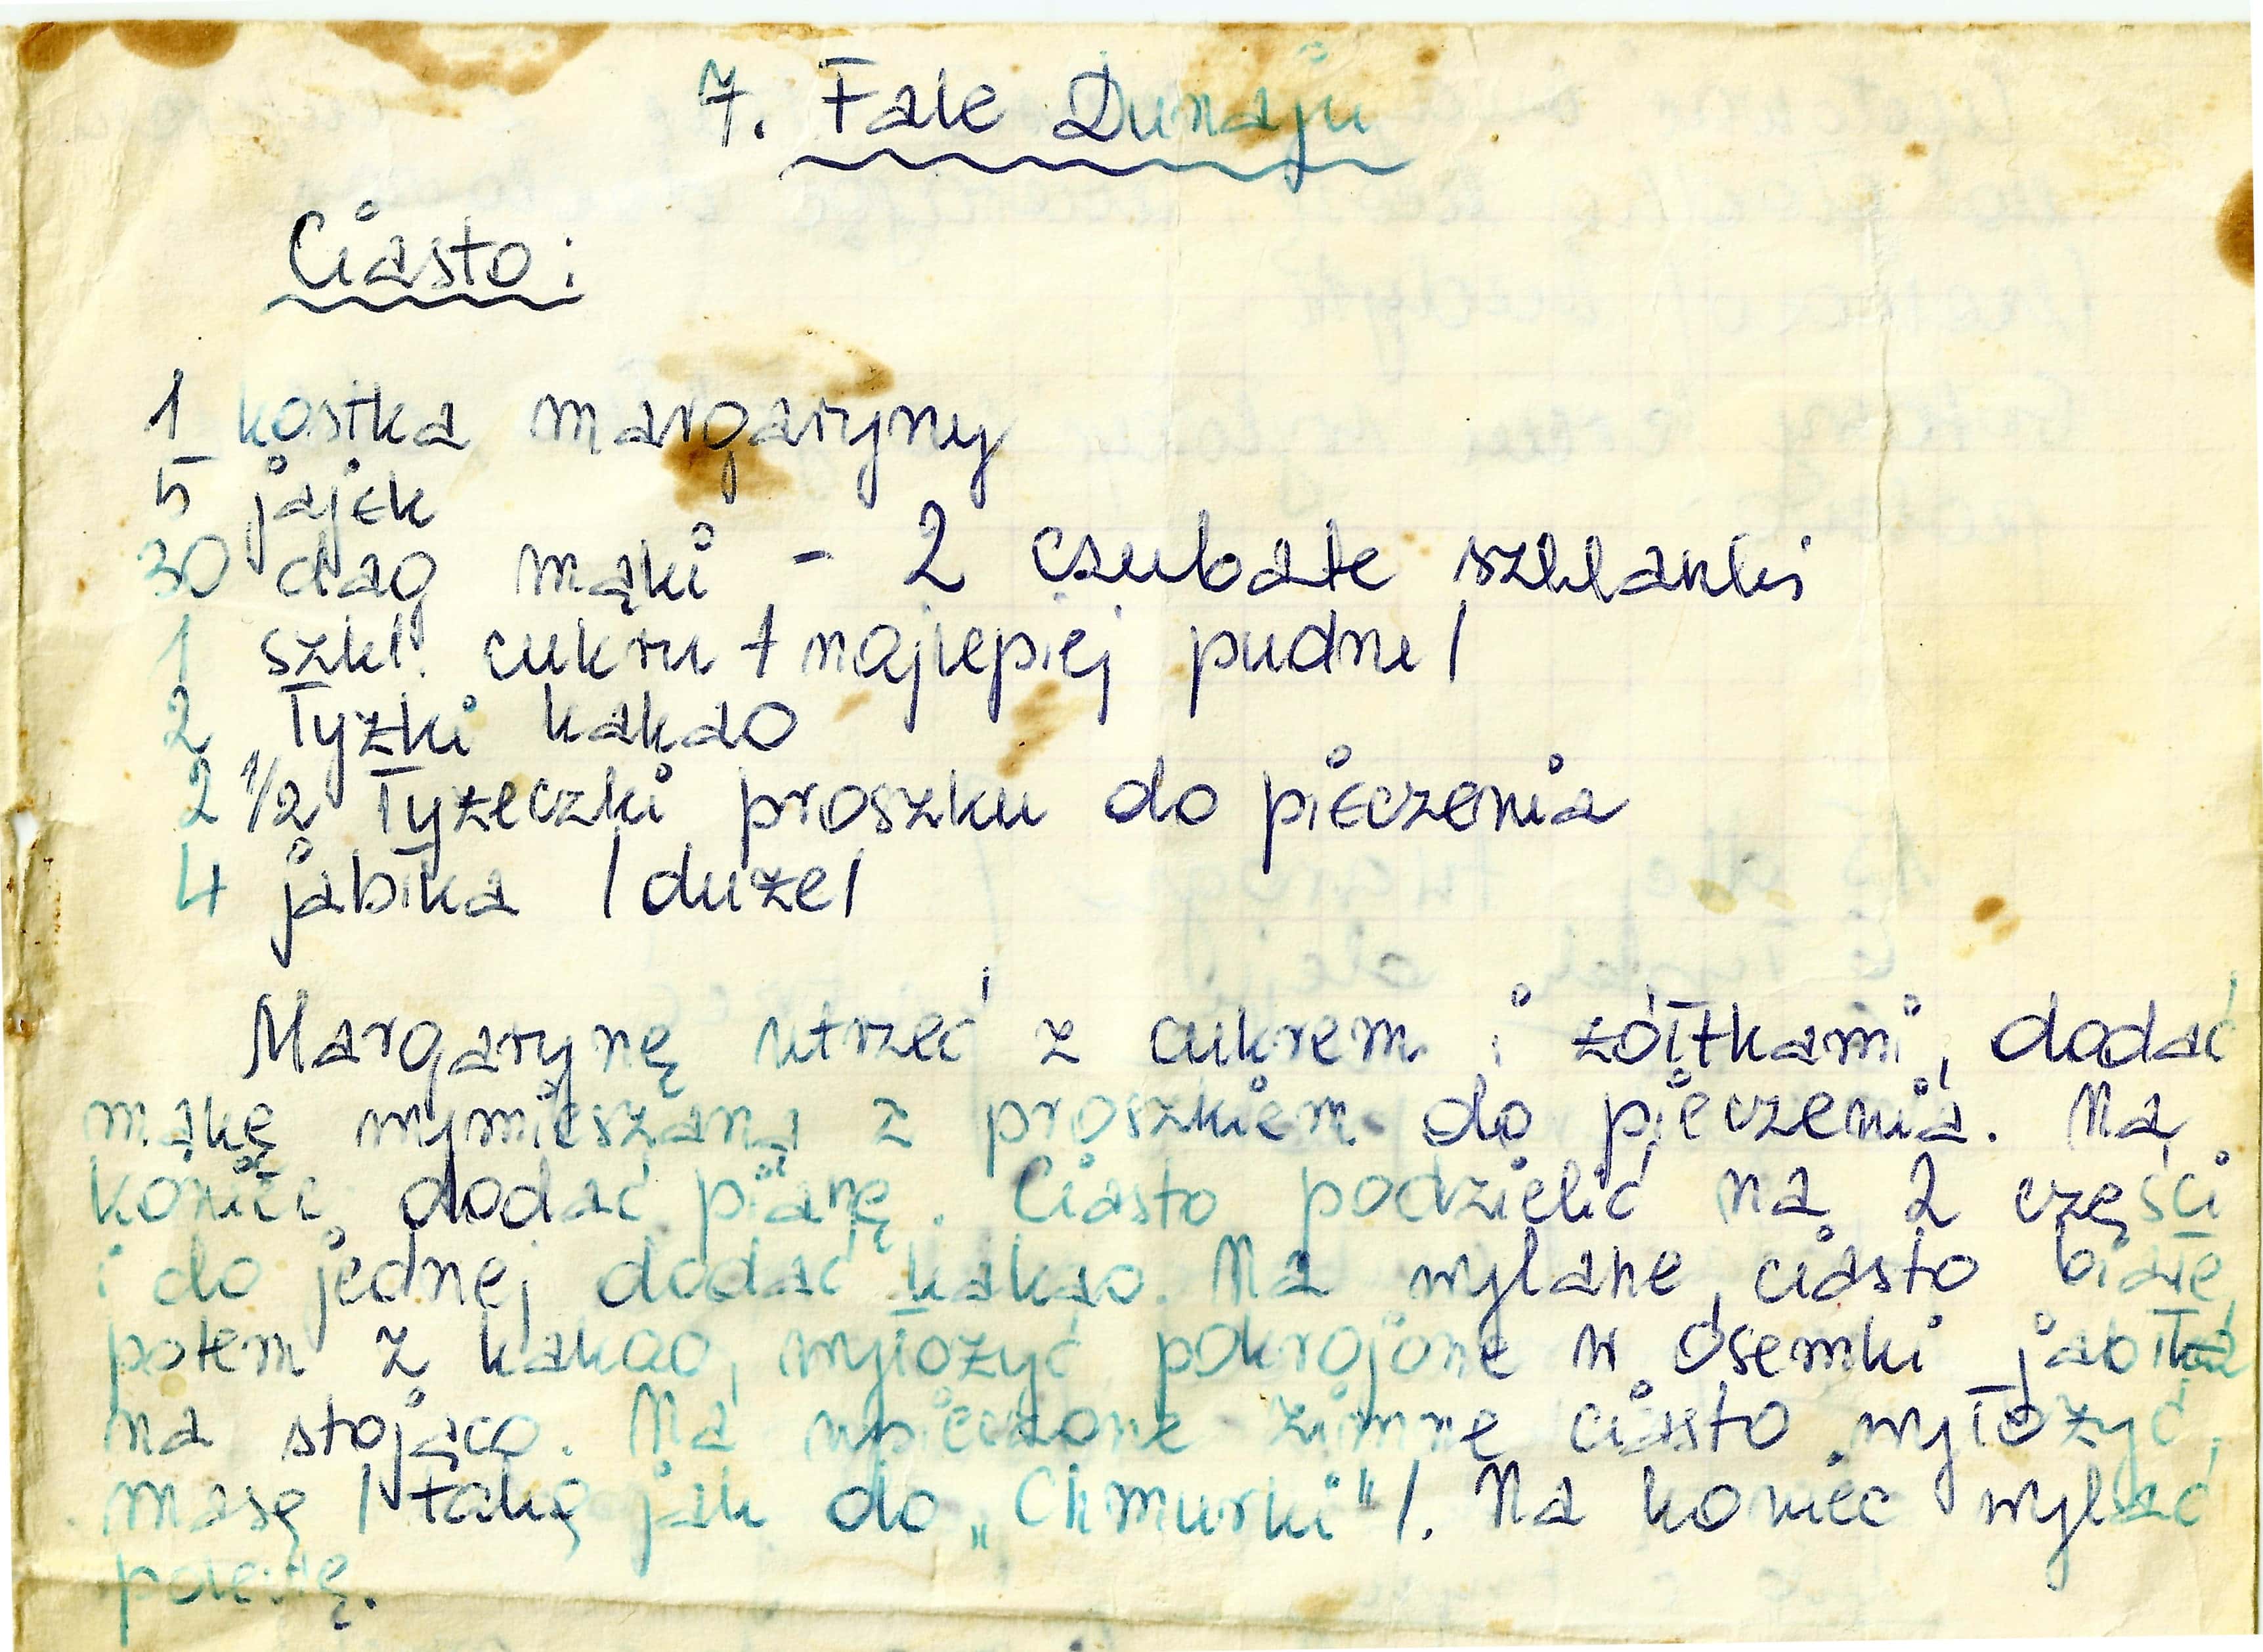 7. Fale Dunaju
Ciasto:
1 kostka margaryny
5 jajek
30 dag mąki - 2 czubate szklanki
1 szkl. cukru /najlepiej pudru/
2 łyżki kakao
2 1/2 łyżeczki proszku do pieczenia
4 jabłka /duże/
Margarynę utrzeć z cukrem i żółtkami, dodać
mąkę wymieszaną z proszkiem do pieczenia. Na
koniec dodać pianę. Ciasto podzielić na 2 części
i do jednej dodać kakao. Na wylane ciasto białe
potem z kakao, wyłożyć pokrojone w ósemki jabłka
na stojąco. Na upieczone zimne ciasto wyłożyć
masę /taką jak do „Chmurki"/. Na koniec wylać
polewę.